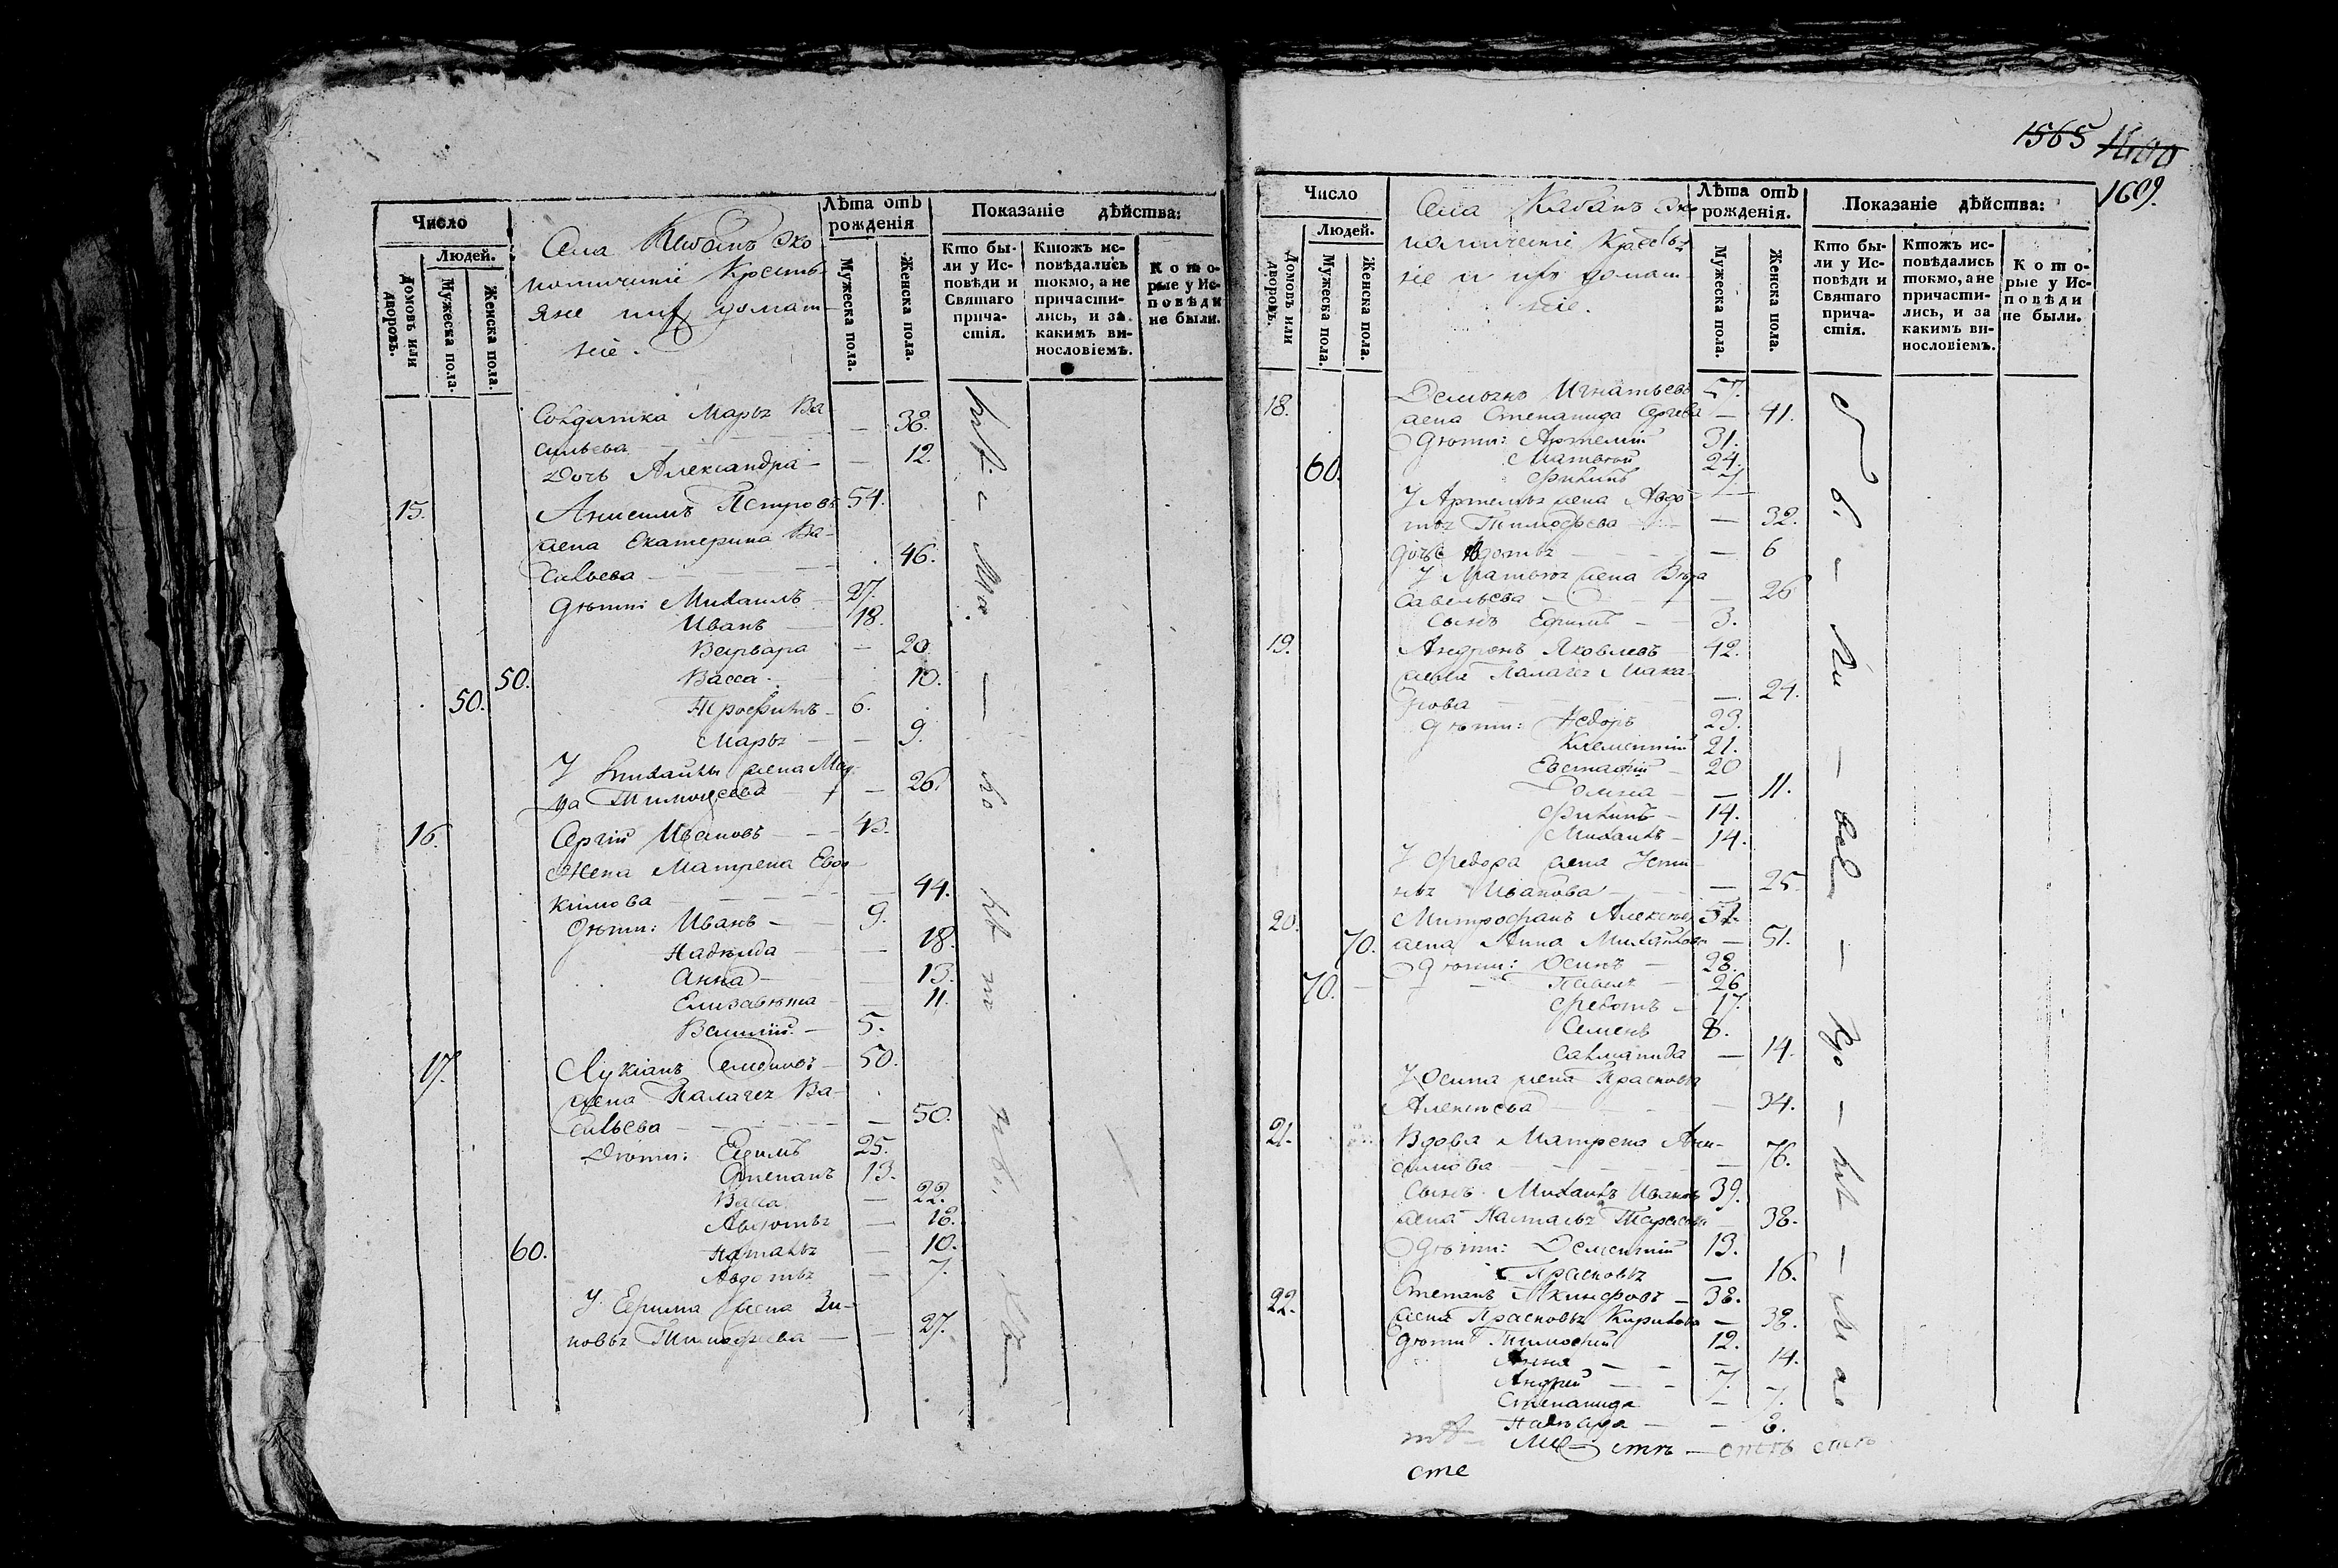 Число
Людей.
Домовъ или дворовъ.
Мужеска пола.
Женска пола.
Села Кабанъ Эко
номическіе Кресть
яне и ихъ домаш-
ніе.
Лѣта отъ рожденія
Мужеска пола.
Женска пола.
Показаніе дѣйства:
Кто бы-
ли у Ис-
повѣди и
Святаго
прича-
стія.
Ктожъ ис-
повѣдались
токмо, а не
причасти-
лись, и за
какимъ ви-
нословіемъ.
Кото-
рые у Ис-
повѣди
не были.
Солдатка Марья Ва
сильева 38.
Дочь Александра — — 12.
15. Анисимъ Петровъ 54.
жена Екатерина Ва-
сильева 46.
дѣти: Михаилъ 27.
Иванъ 18.
Варвара — 20.
50. Васса 10.
50. Трофимъ 6.
Марья — — 9.
У Михайлы жена
Тимофеева — 26.
16. Сергій Ивановъ 43.
Жена Матрена Евдо
кимова — 44.
дѣти: Иванъ 9.
Надежда — 18.
Анна — 13.
Елизавета — 11.
Василій — 5.
17. Лукіанъ 50.
жена Палагея Ва-
сильева — 50.
Дѣти: Ефимъ 25.
Степанъ 13.
Васса — 22.
Авдотья — 18.
60. Наталья — 10.
Авдотья — 7.
У Ефима жена Зи-
новья Тимофеева — 27.
1565
1609.
Число
Людей.
Домовъ или дворовъ.
Мужеска пола.
Женска пола.
Села Кабанъ Эко
номическіе Крестья
не и ихъ домаш-
ніе.
Лѣта отъ рожденія.
Мужеска пола.
Женска пола.
Показаніе дѣйства:
Кто бы-
ли у Ис-
повѣди и
Святаго
прича-
стія.
Ктожъ ис-
повѣдались
токмо, а не
причасти-
лись, и за
какимъ ви-
нословіемъ.
Кото-
рые у Ис-
повѣди
не были.
18. Игнатьевъ 57.
жена Степанида — 41.
дѣти: Артемій 31.
60. Матвей 24.
Филипъ 7.
У Артемья жена Авдо
тья Тимофеева — 32.
дочь — 6
У Матвея жена Вѣра
Савельева — 26
сынъ Ефимъ — 3.
19. Андронъ Яковлевъ 42.
жена Палагея Мака
рова — 24.
дѣти: Федоръ 23.
Климентій 21.
Евстафій 20
Домна — 11.
Филипъ 14.
Михаилъ 14.
У Федора жена Усти
нья Иванова — 25.
20. Митрофанъ Алексѣев
70. жена Анна Михайлова — 51.
дѣти: Осипъ 28.
70. Павелъ 26
Федотъ 17.
Семенъ 8.
— 14.
У Осипа жена Прасковья
Алексѣева — 34.
21. Вдова Матрена Ани-
симова — 76.
сынъ Михаилъ Ивановъ 39.
жена Наталья Тарасова — 38.
дѣти: Дементій 13.
Прасковья — 16.
22. Степанъ 38.
жена Прасковья Кирилова — 38.
дѣти Тимофей 12.
Анна — 14.
Андрей 7.
Степанида — 7.
— 8.
сте